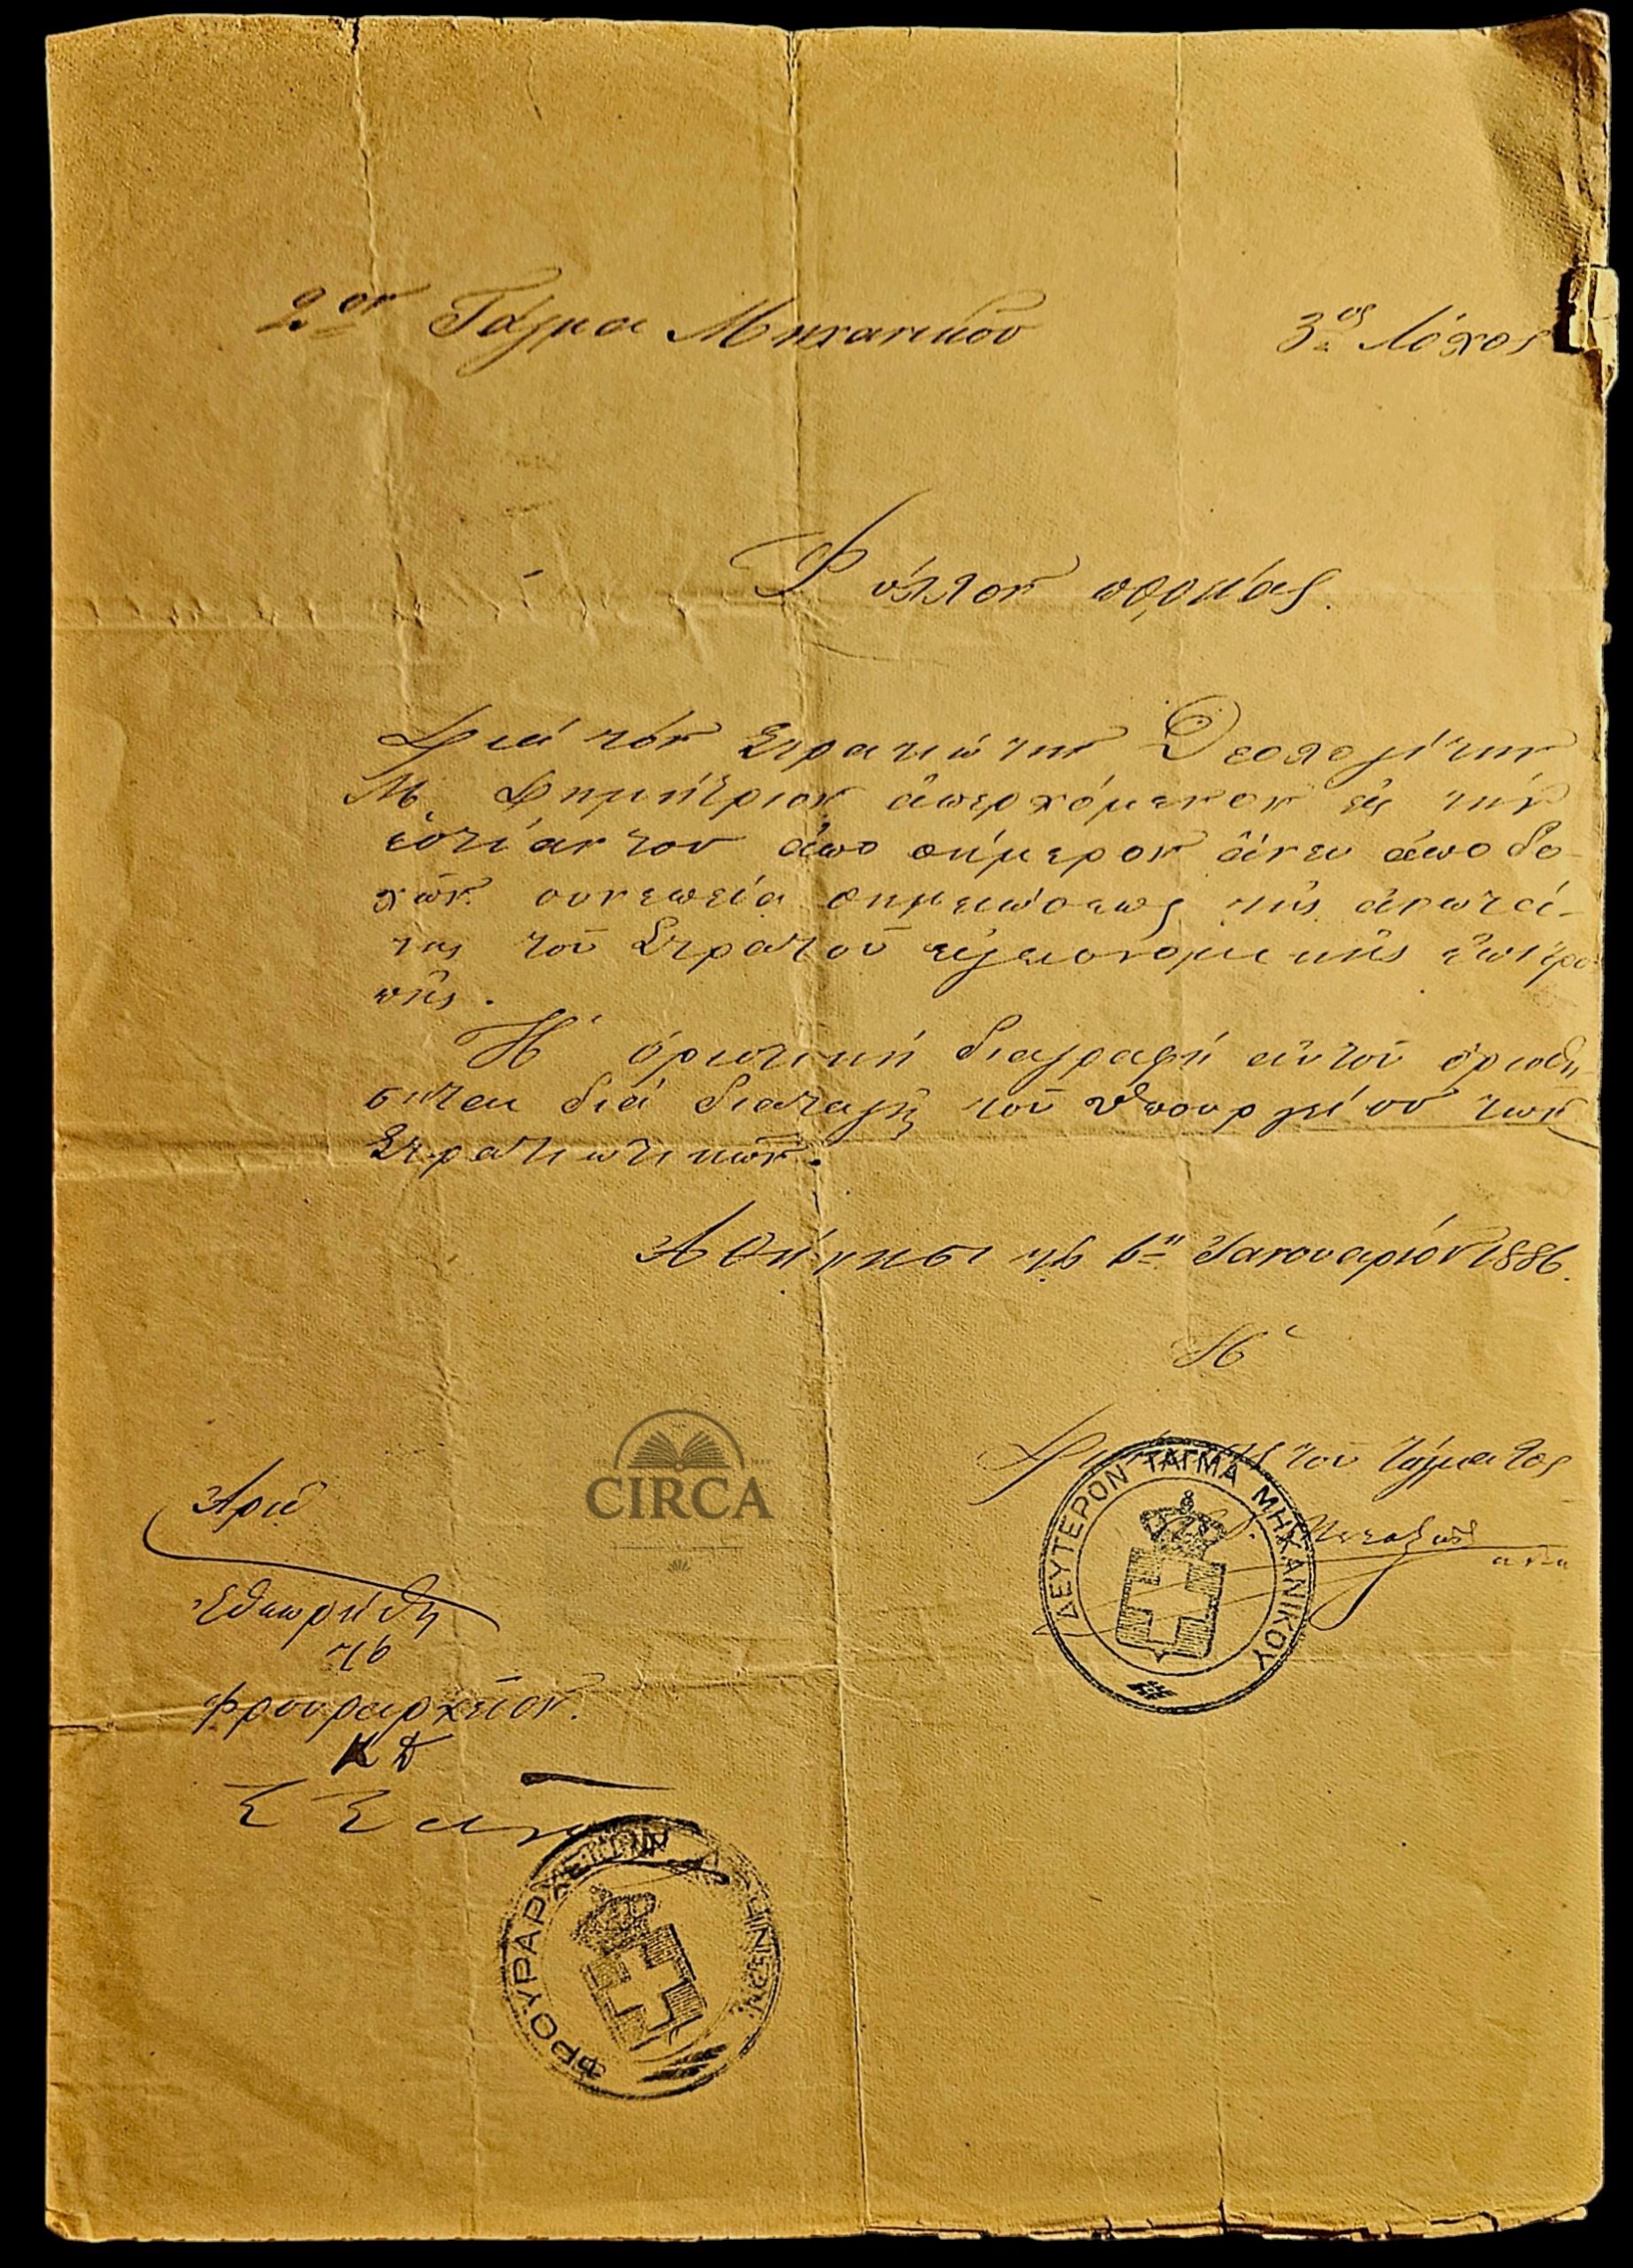 2ον Τάγμα Μηχανικοῦ 3ος Λόχος
Φύλλον πορείας.
Διά τόν Στρατιώτην
Μ. Δημήτριον ἀπερχόμενον εἰς τήν
ἑστίαν του ἀπό σήμερον ἄνευ ἀποδο-
χῶν συνεπείᾳ σημειώσεως τῆς ἀνωτά-
της τοῦ Στρατοῦ ὑγειονομικῆς ἐπιτρο-
πῆς.
Ἡ ὁριστική διαγραφή αὐτοῦ ὁρισθή-
σεται διά διαταγῆς τοῦ Ὑπουργείου τῶν
Στρατιωτικῶν.
Ἀθήνησι τῇ 6ῃ Ἰανουαρίου 1886.
Ἡ
Διοίκησις τοῦ τάγματος
ΔΕΥΤΕΡΟΝ ΤΑΓΜΑ ΜΗΧΑΝΙΚΟΥ
CIRCA
Ἀριθ
Ἐθεωρήθη
τῇ
Φρουραρχεῖον.
ΦΡΟΥΡΑΡΧΕΙΟΝ ΑΘΗΝΩΝ